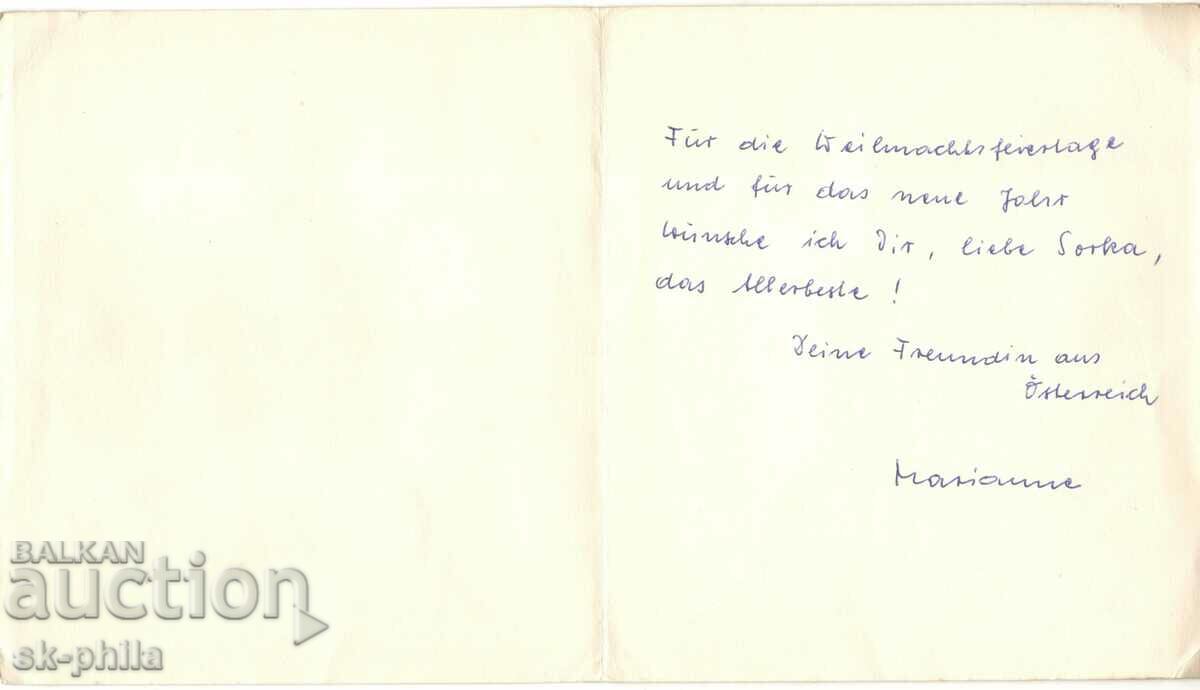 Für die Weihnachtsfeiertage
und für das neue Jahr
wünsche ich Dir, liebe Sorka,
das Allerbeste!
Deine Freundin aus
Österreich
Marianne
BALKAN
auction
sk-phila